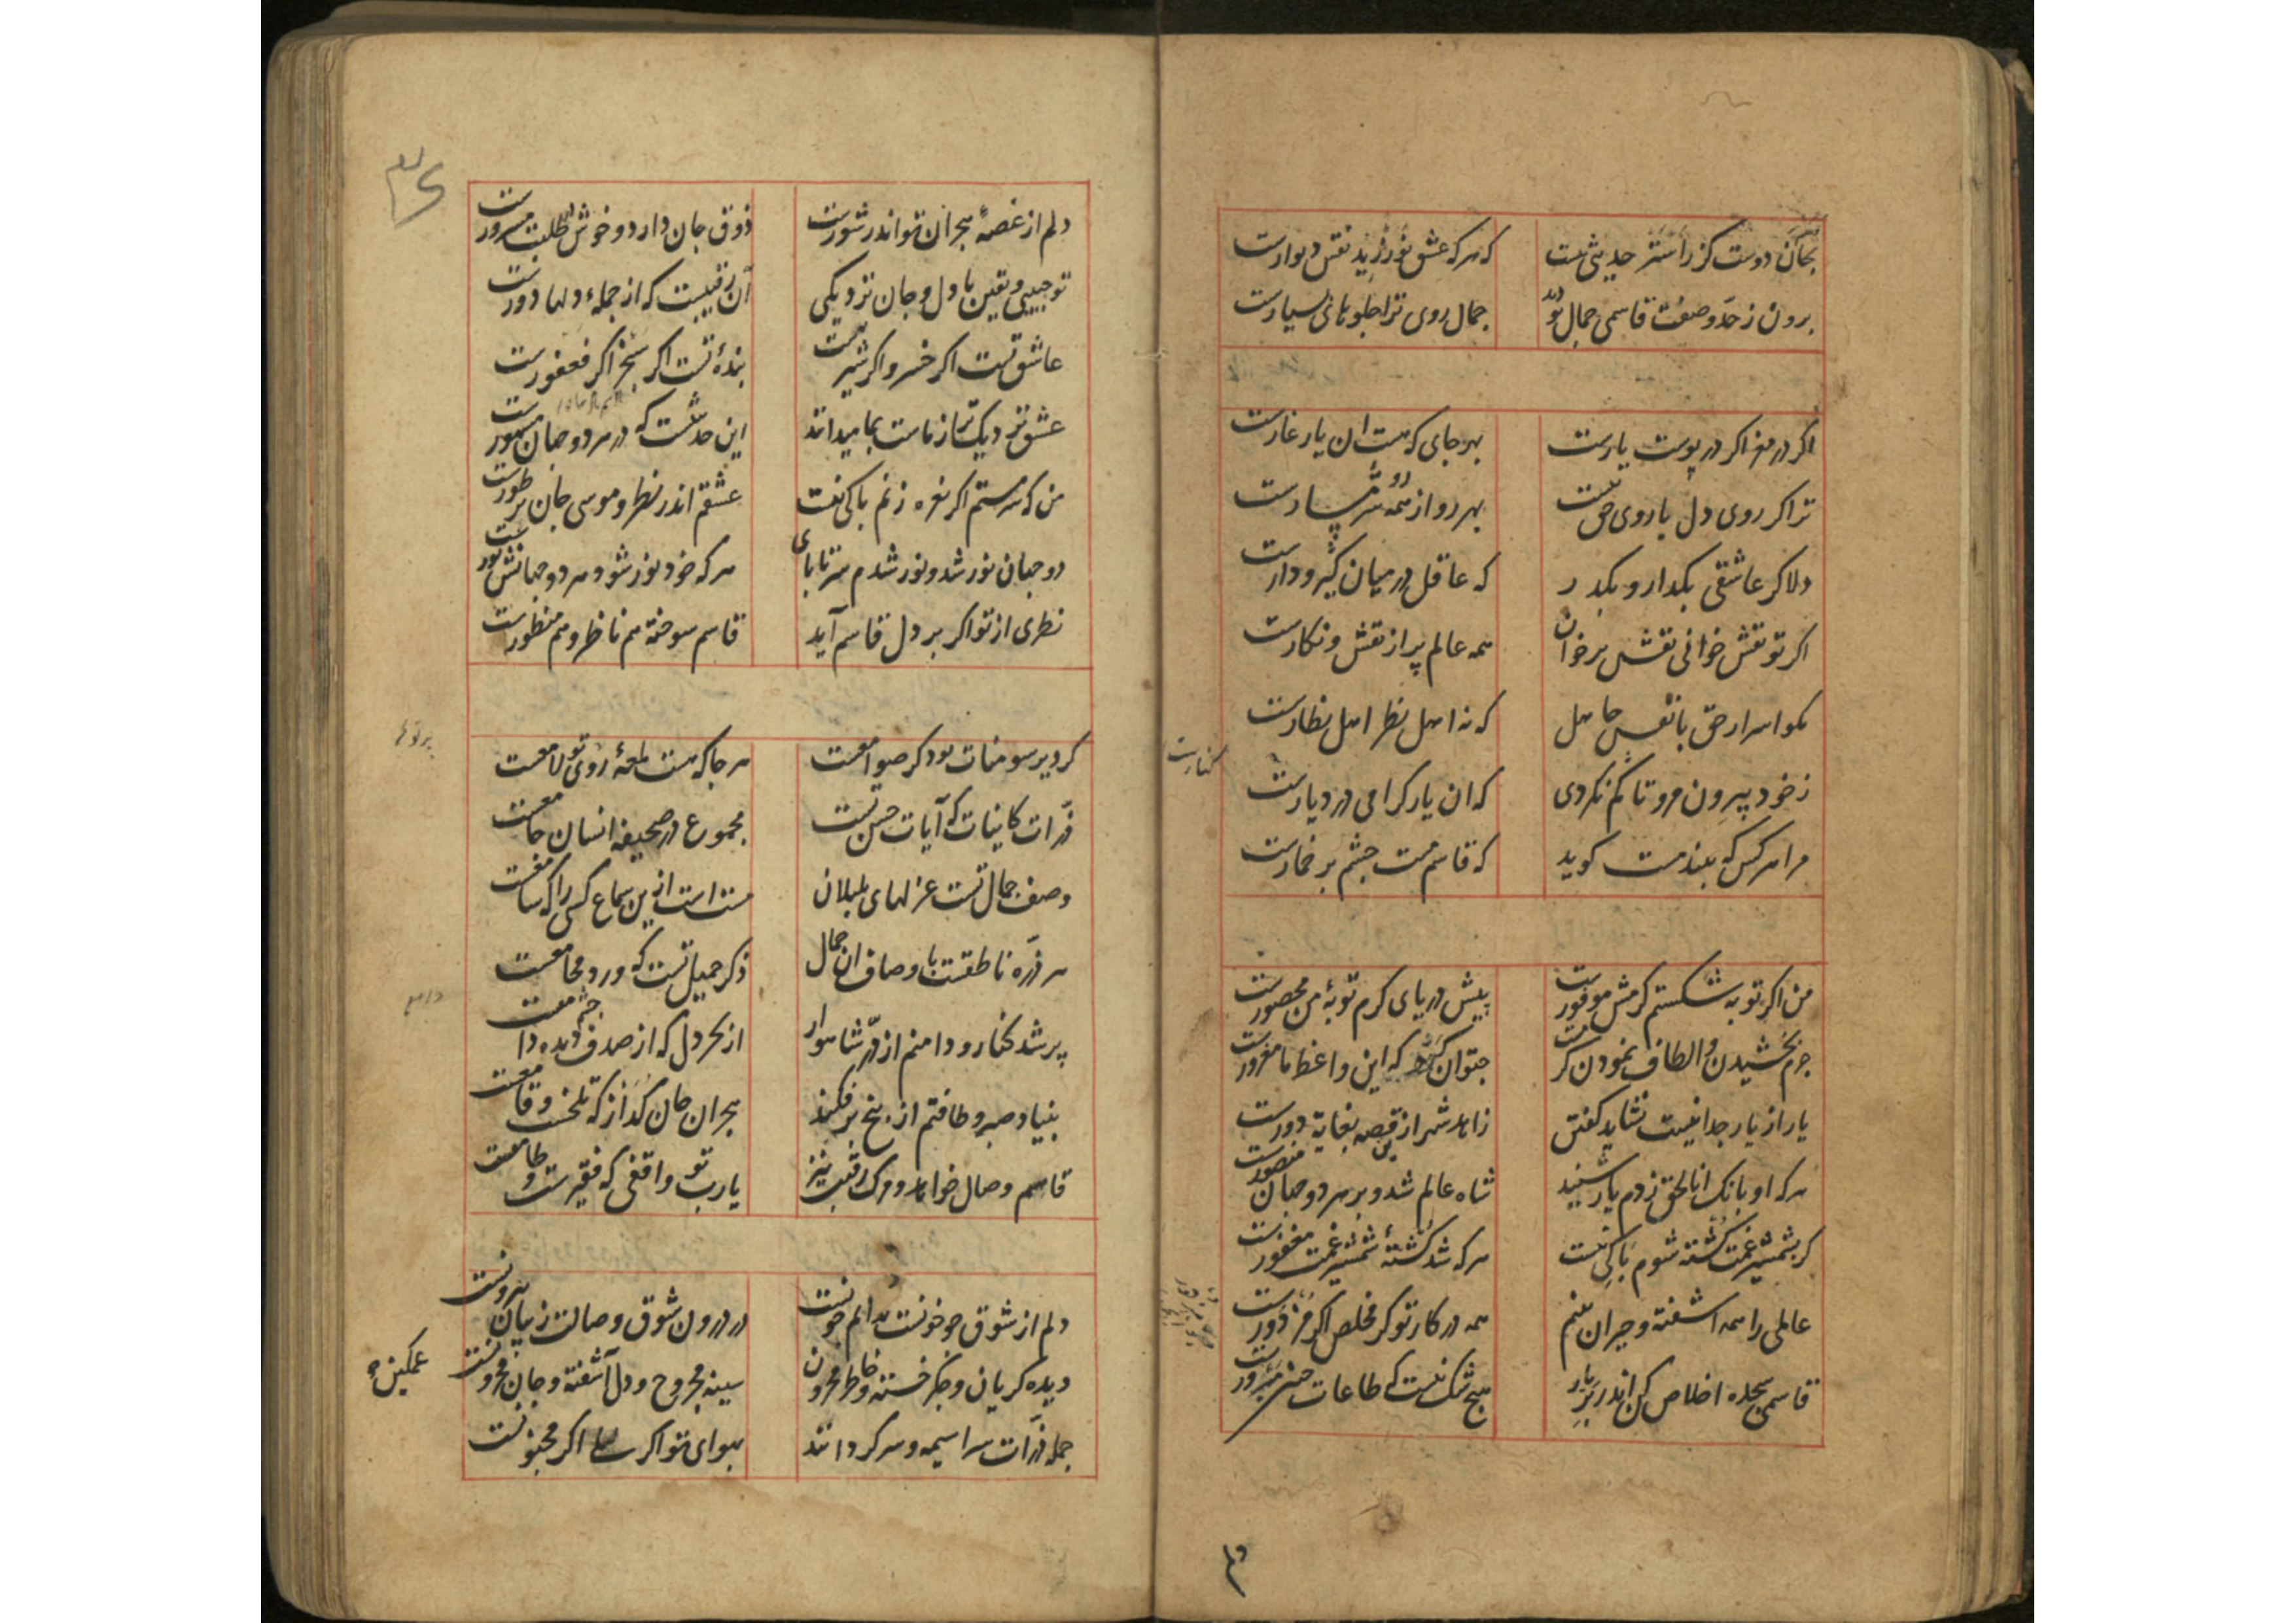 بجان دوست کزراست‌تر حدیثی هست که هر که عشق نورزید نقش دیوارست
برون ز حد و صفت قاسمی جمال تو دید جمال روی ترا جلوهای بسیارست
اکر در مغز اکر در پوست یارست بهر جای که هست ان یار غارست
ترا کر روی دل با روی حق نیست بهر رو از همه رو شرمسارست
دلا کر عاشقی بکدار و بکذر که عاقل در میان کیر و دارست
اکر تو نقش خوانی نقش برخوان همه عالم پر از نقش و نکارست
مکو اسرار حق با نفس جاهل که نه اهل نظر اهل نظارست
ز خود بیرون مرو تا کم نکردی که ان یار کرامی در دیارست
مرا هر کس که بیند مست کوید که قاسم مست چشم پر خمارست
کنارست
من اکر توبه شکستم کرمش موفورست پیش دریای کرم توبهٔ من محصورست
جرم بخشیدن و الطاف نمودن کرمست چتوان کرد که این واعظ ما مغرورست
یار از یار جدا نیست نشاید کفتن زاهد شهر ازین قصه بغایة دورست
هر که او بانک اناالحق زدم یار شنید شاه عالم شد و بر هر دو جهان منصورست
کر بشمشیر غمت کشته شوم باکی نیست هر که شد کشتهٔ شمشیر غمت مغفورست
عالمی را همه اشفته و حیران بینم همه در کار تو کر مخلص اکر مزدورست
قاسمی سجده اخلاص کن اندر بر یار هیچ شک نیست که طاعات چنین مبرورست
۳۶
دلم از غصهٔ هجران تو اندر شورست ذوق جان دارد و خوش در طلبت مسرورست
تو حبیبی و یقین با دل و جان نزدیکی آن رقیبست که از جملهٔ دلها دورست
عاشق تست اکر خسرو اکر شیرینست بندهٔ تست اکر سنجر اکر فغفورست
عشق تو دیک تر از ماست بما میداند این حدیثست که در هر دو جهان مشهورست
من که سر مستم اکر نعره زنم باکی نیست عشقم اندر نظر و موسی جان بر طورست
دو جهان نور شد و نور شدم سر تا پای هر که خود نور شود هر دو جهانش نورست
نظری از تو اکر بر دل قاسم آید قاسم سوخته هم ناظر و هم منظورست
کر دیر سومنات بود کر صوامعست هر جا که هست لمعهٔ روی تو لامعست
ذرات کاینات که آیات حسن تست مجموع در صحیفه انسان جامعست
وصف جمال تست غزلهای بلبلان مست است ازین سماع کسی را که سامعست
هر ذره ناطقست باوصاف ان جمال ذکر جمیل تست که ورد مجامعست
پر شد کنار و دامنم از در شاهوار از بحر دل که از صدف دیده دامعست
بنیاد صبر و طاقتم از بیخ بر فکند هجران جان کداز که تلخست و قامعست
قاسم وصال خواهد و مرک رقیب نیز یارب تو واقفی که فقیرست و طامعست
دلم از شوق چو خونست ندانم چونست در درون شوق وصالت ز بیان بیرونست
دیده کریان و جکر خسته و خاطر محزون سینه مجروح و دل آشفته و جان محزونست
غمکین
جمله ذرات سراسیمه و سرکردانند بهوای تو اکر لیلی اکر مجنونست